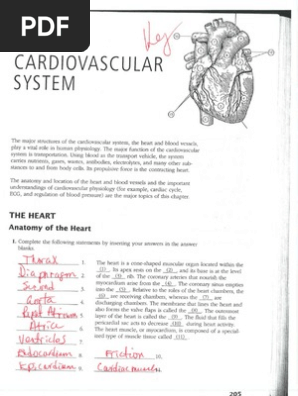 PDF
Key
CARDIOVASCULAR
SYSTEM
The major structures of the cardiovascular system, the heart and blood vessels,
play a vital role in human physiology. The major function of the cardiovascular
system is transportation. Using blood as the transport vehicle, the system
carries nutrients, gases, wastes, antibodies, electrolytes, and many other sub-
stances to and from body cells. Its propulsive force is the contracting heart.
The anatomy and location of the heart and blood vessels and the important
understandings of cardiovascular physiology (for example, cardiac cycle,
ECG, and regulation of blood pressure) are the major topics of this chapter.
THE HEART
Anatomy of the Heart
1. Complete the following statements by inserting your answers in the answer
blanks
Thorax 1. The heart is a cone-shaped muscular organ located within the
Diaphragm 2. (1). Its apex rests on the (2), and its base is at the level
Second 3. of the (3) rib. The coronary arteries that nourish the
Aorta 4. myocardium arise from the (4). The coronary sinus empties
Right Atrium 5. into the (5). Relative to the roles of the heart chambers, the
Atria 6. (6) are receiving chambers, whereas the (7) are
Ventricles 7. discharging chambers. The membrane that lines the heart and
also forms the valve flaps is called the (8). The outermost
layer of the heart is called the (9). The fluid that fills the
pericardial sac acts to decrease (10) during heart activity.
The heart muscle, or myocardium, is composed of a special-
ized type of muscle tissue called (11).
Endocardium 8. Friction 10.
Epicardium 9. Cardiac muscle
205